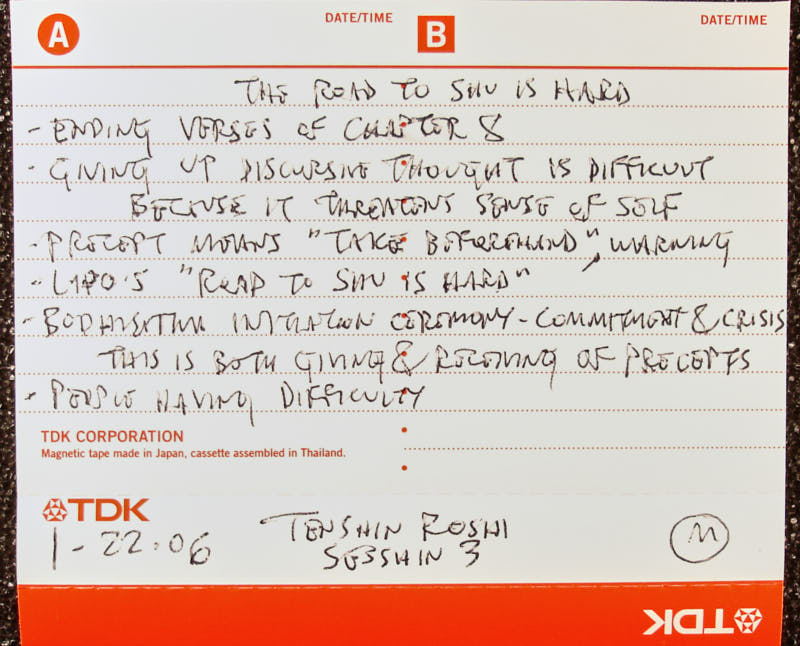 A DATE/TIME B DATE/TIME
THE ROAD TO SHU IS HARD
- ENDING VERSES OF CHAPTER 8
- GIVING UP DISCURSIVE THOUGHT IS DIFFICULT
BECAUSE IT THREATENS SENSE OF SELF
- PRECEPT MEANS "TAKE BEFOREHAND", WARNING
- LIPO'S "ROAD TO SHU IS HARD"
- BODHISATTVA INITIATION CEREMONY - COMMITMENT & CRISIS
THIS IS BOTH GIVING & RECEIVING OF PRECEPTS
- PEOPLE HAVING DIFFICULTY
TDK CORPORATION
Magnetic tape made in Japan, cassette assembled in Thailand.
TDK
1-22-06 TENSHIN ROSHI M
SESSHIN 3
TDK